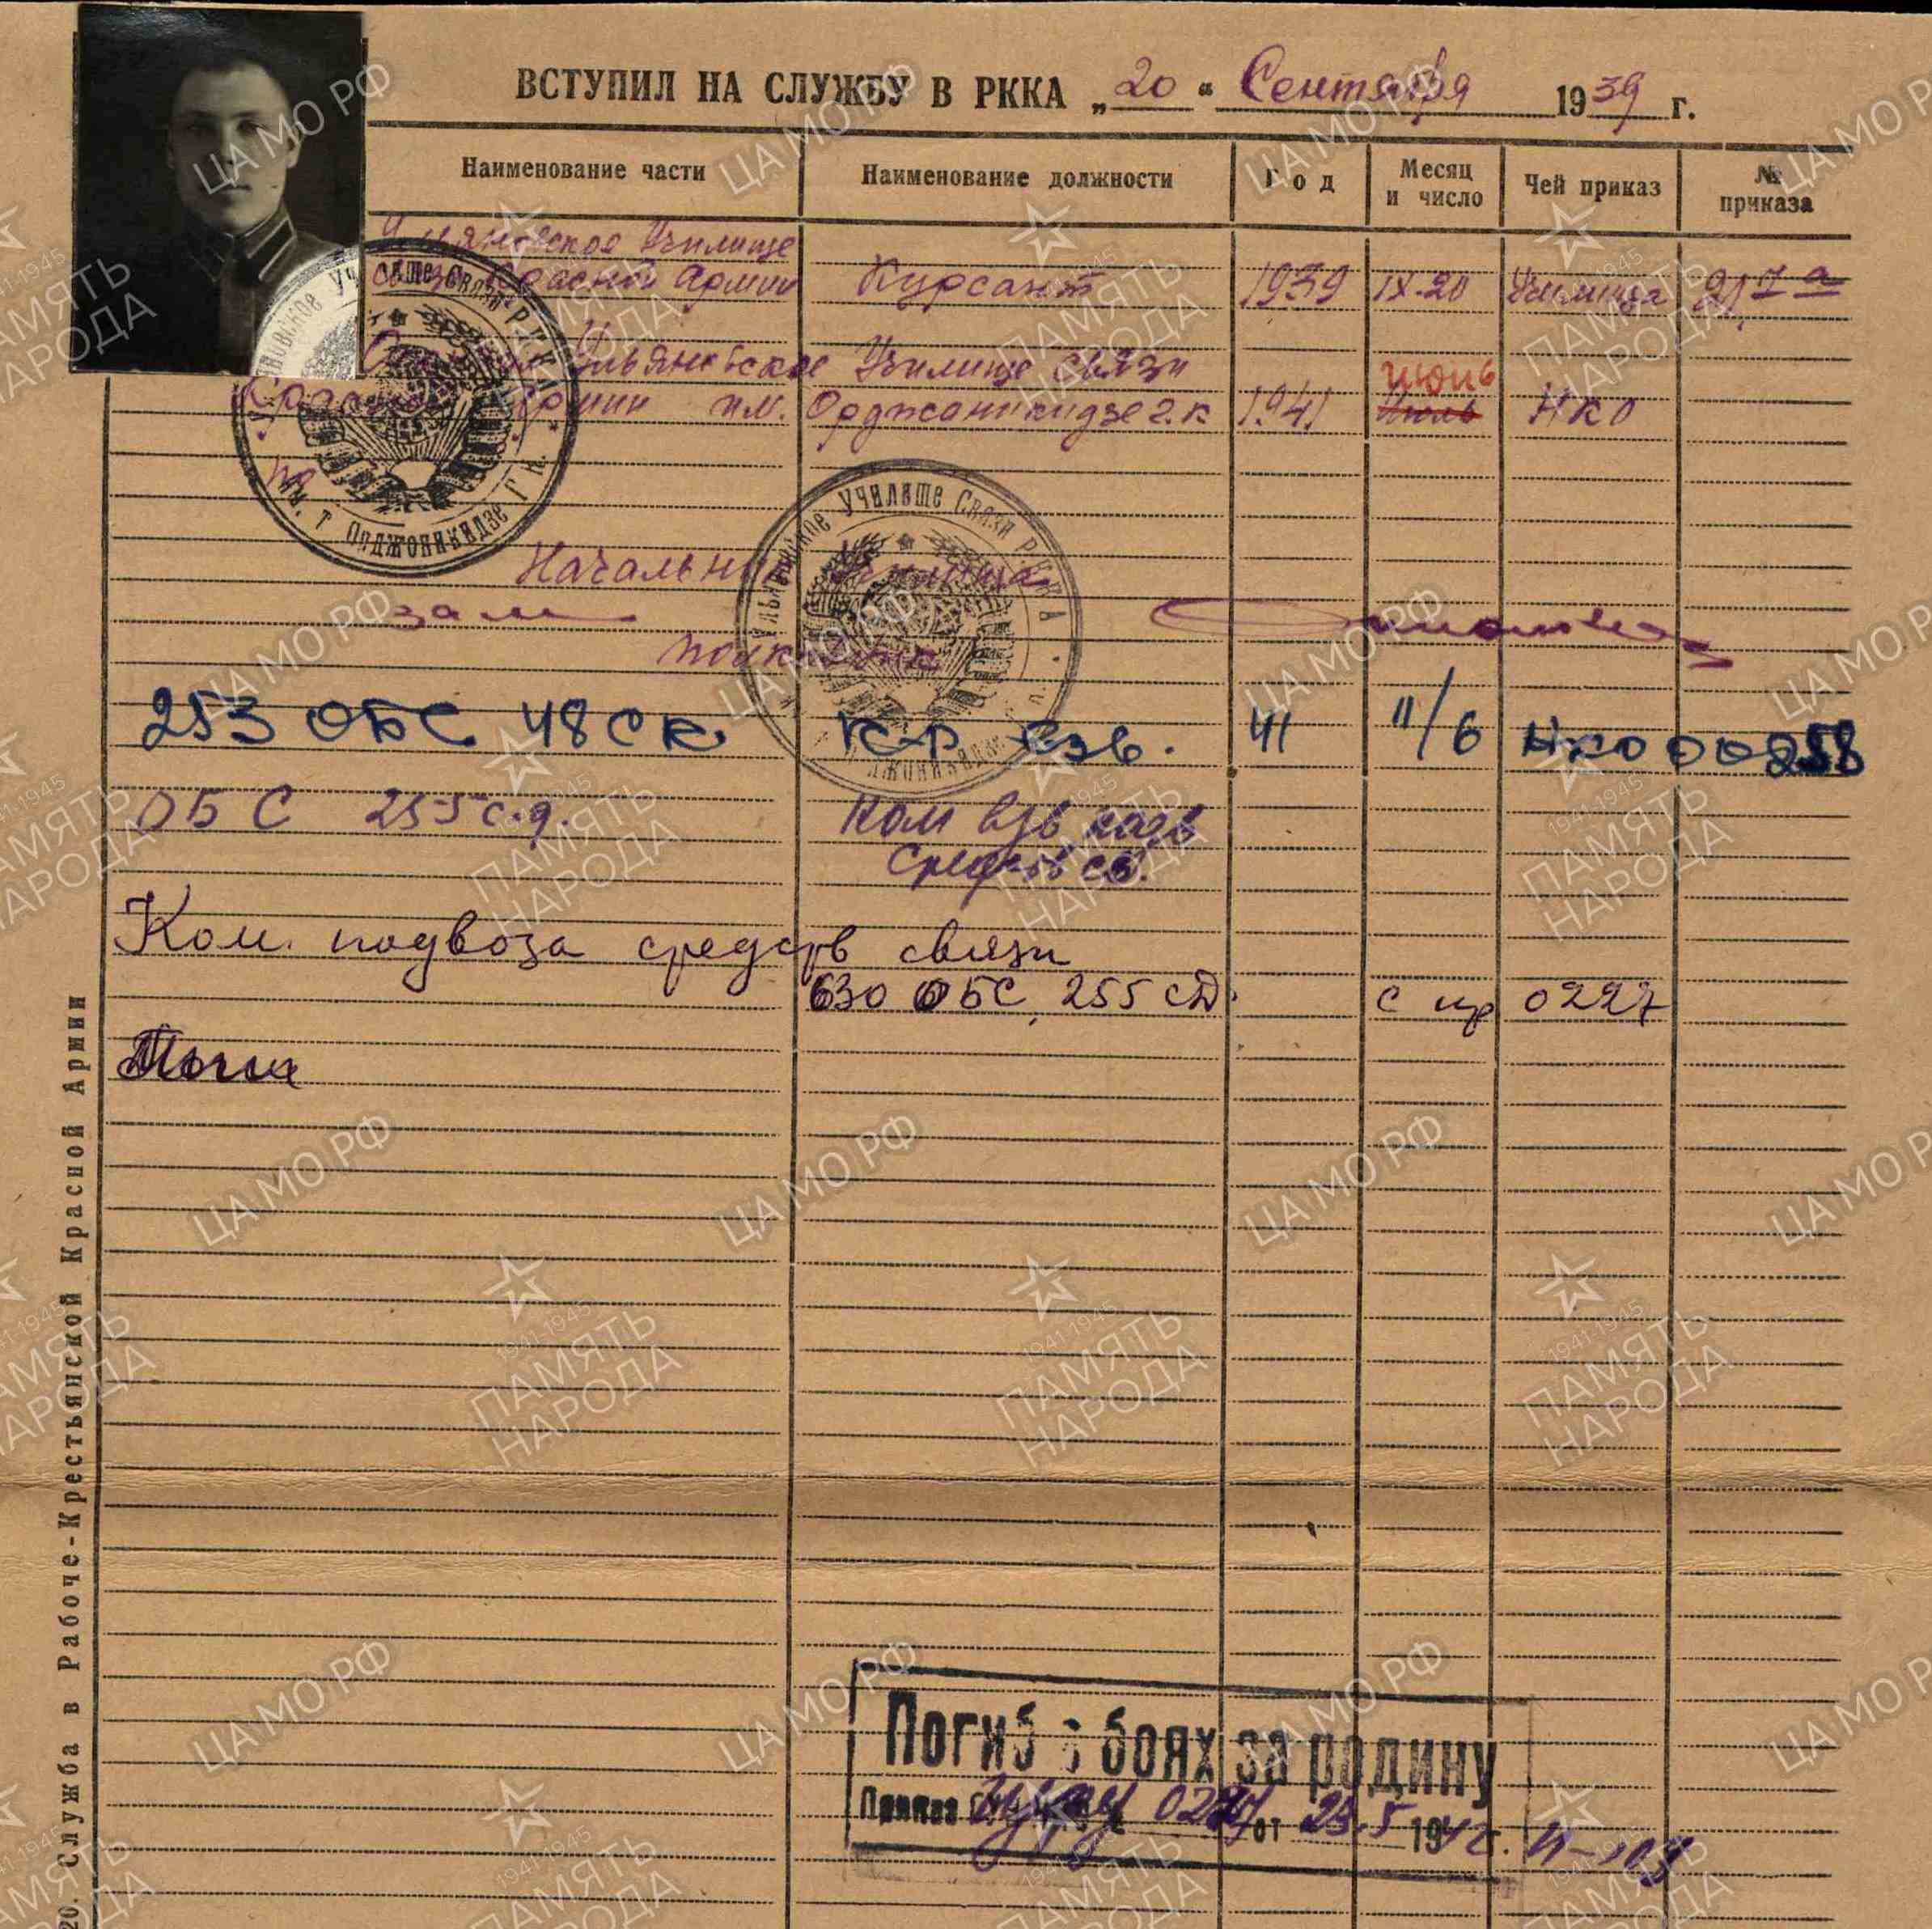 ВСТУПИЛ НА СЛУЖБУ В РККА „20“ Сентября 1939 г.
Наименование части Наименование должности Год Месяц и число Чей приказ № приказа
Ульяновское Училище
связи Красной Армии Курсант 1939 IX-20 Училища 217а
Ульяновское Училище связи
июнь
Красной Армии им. Орджоникидзе Г.К 1941 Июль НКО
по
Начальник Училища
зам
полковник
253 ОБС 48 СК К-р взв. 41 11/6 НКО 00258
ОБС 255 с.д. Ком взв подв
средств св.
Ком. подвоза средств связи
630 ОБС, 255 СД. с пр 0227
Погиб в боях за родину
Приказ 0227 от 23.5 1942 г.
20. Служба в Рабоче-Крестьянской Красной Армии
Ульяновское Училище Связи РККА
им. т. Орджоникидзе Г.К.
Ульяновское Училище Связи РККА
ЦАМО РФ
1941-1945
ПАМЯТЬ
НАРОДА